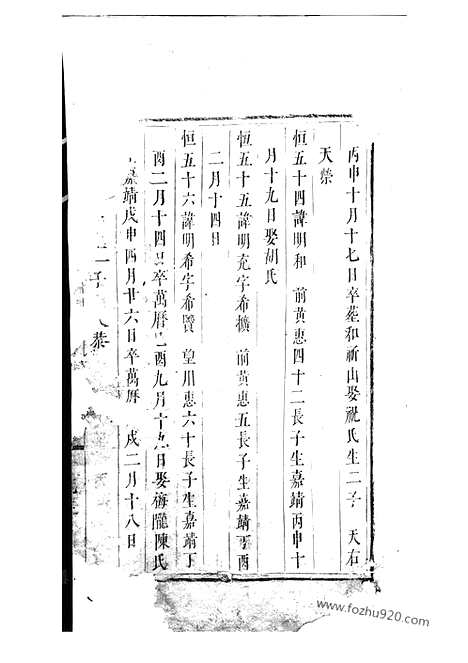 丙申十月十七日卒塟和祈山娶祝氏生二子　天右
天榮
恒五十四諱明和　前黄惠四十二長子生嘉靖丙申十
月十九日娶胡氏
恒五十五諱明充字希擴　前黄惠五長子生嘉靖丁酉
二月十四日
恒五十六諱明希字希賢　望川惠六十長子生嘉靖丁
酉二月十四日卒萬曆 酉九月十九日娶梅隴陳氏
嘉靖戊申四月廿六日卒萬曆 戌二月十八日
二子
www.fozhu920.com